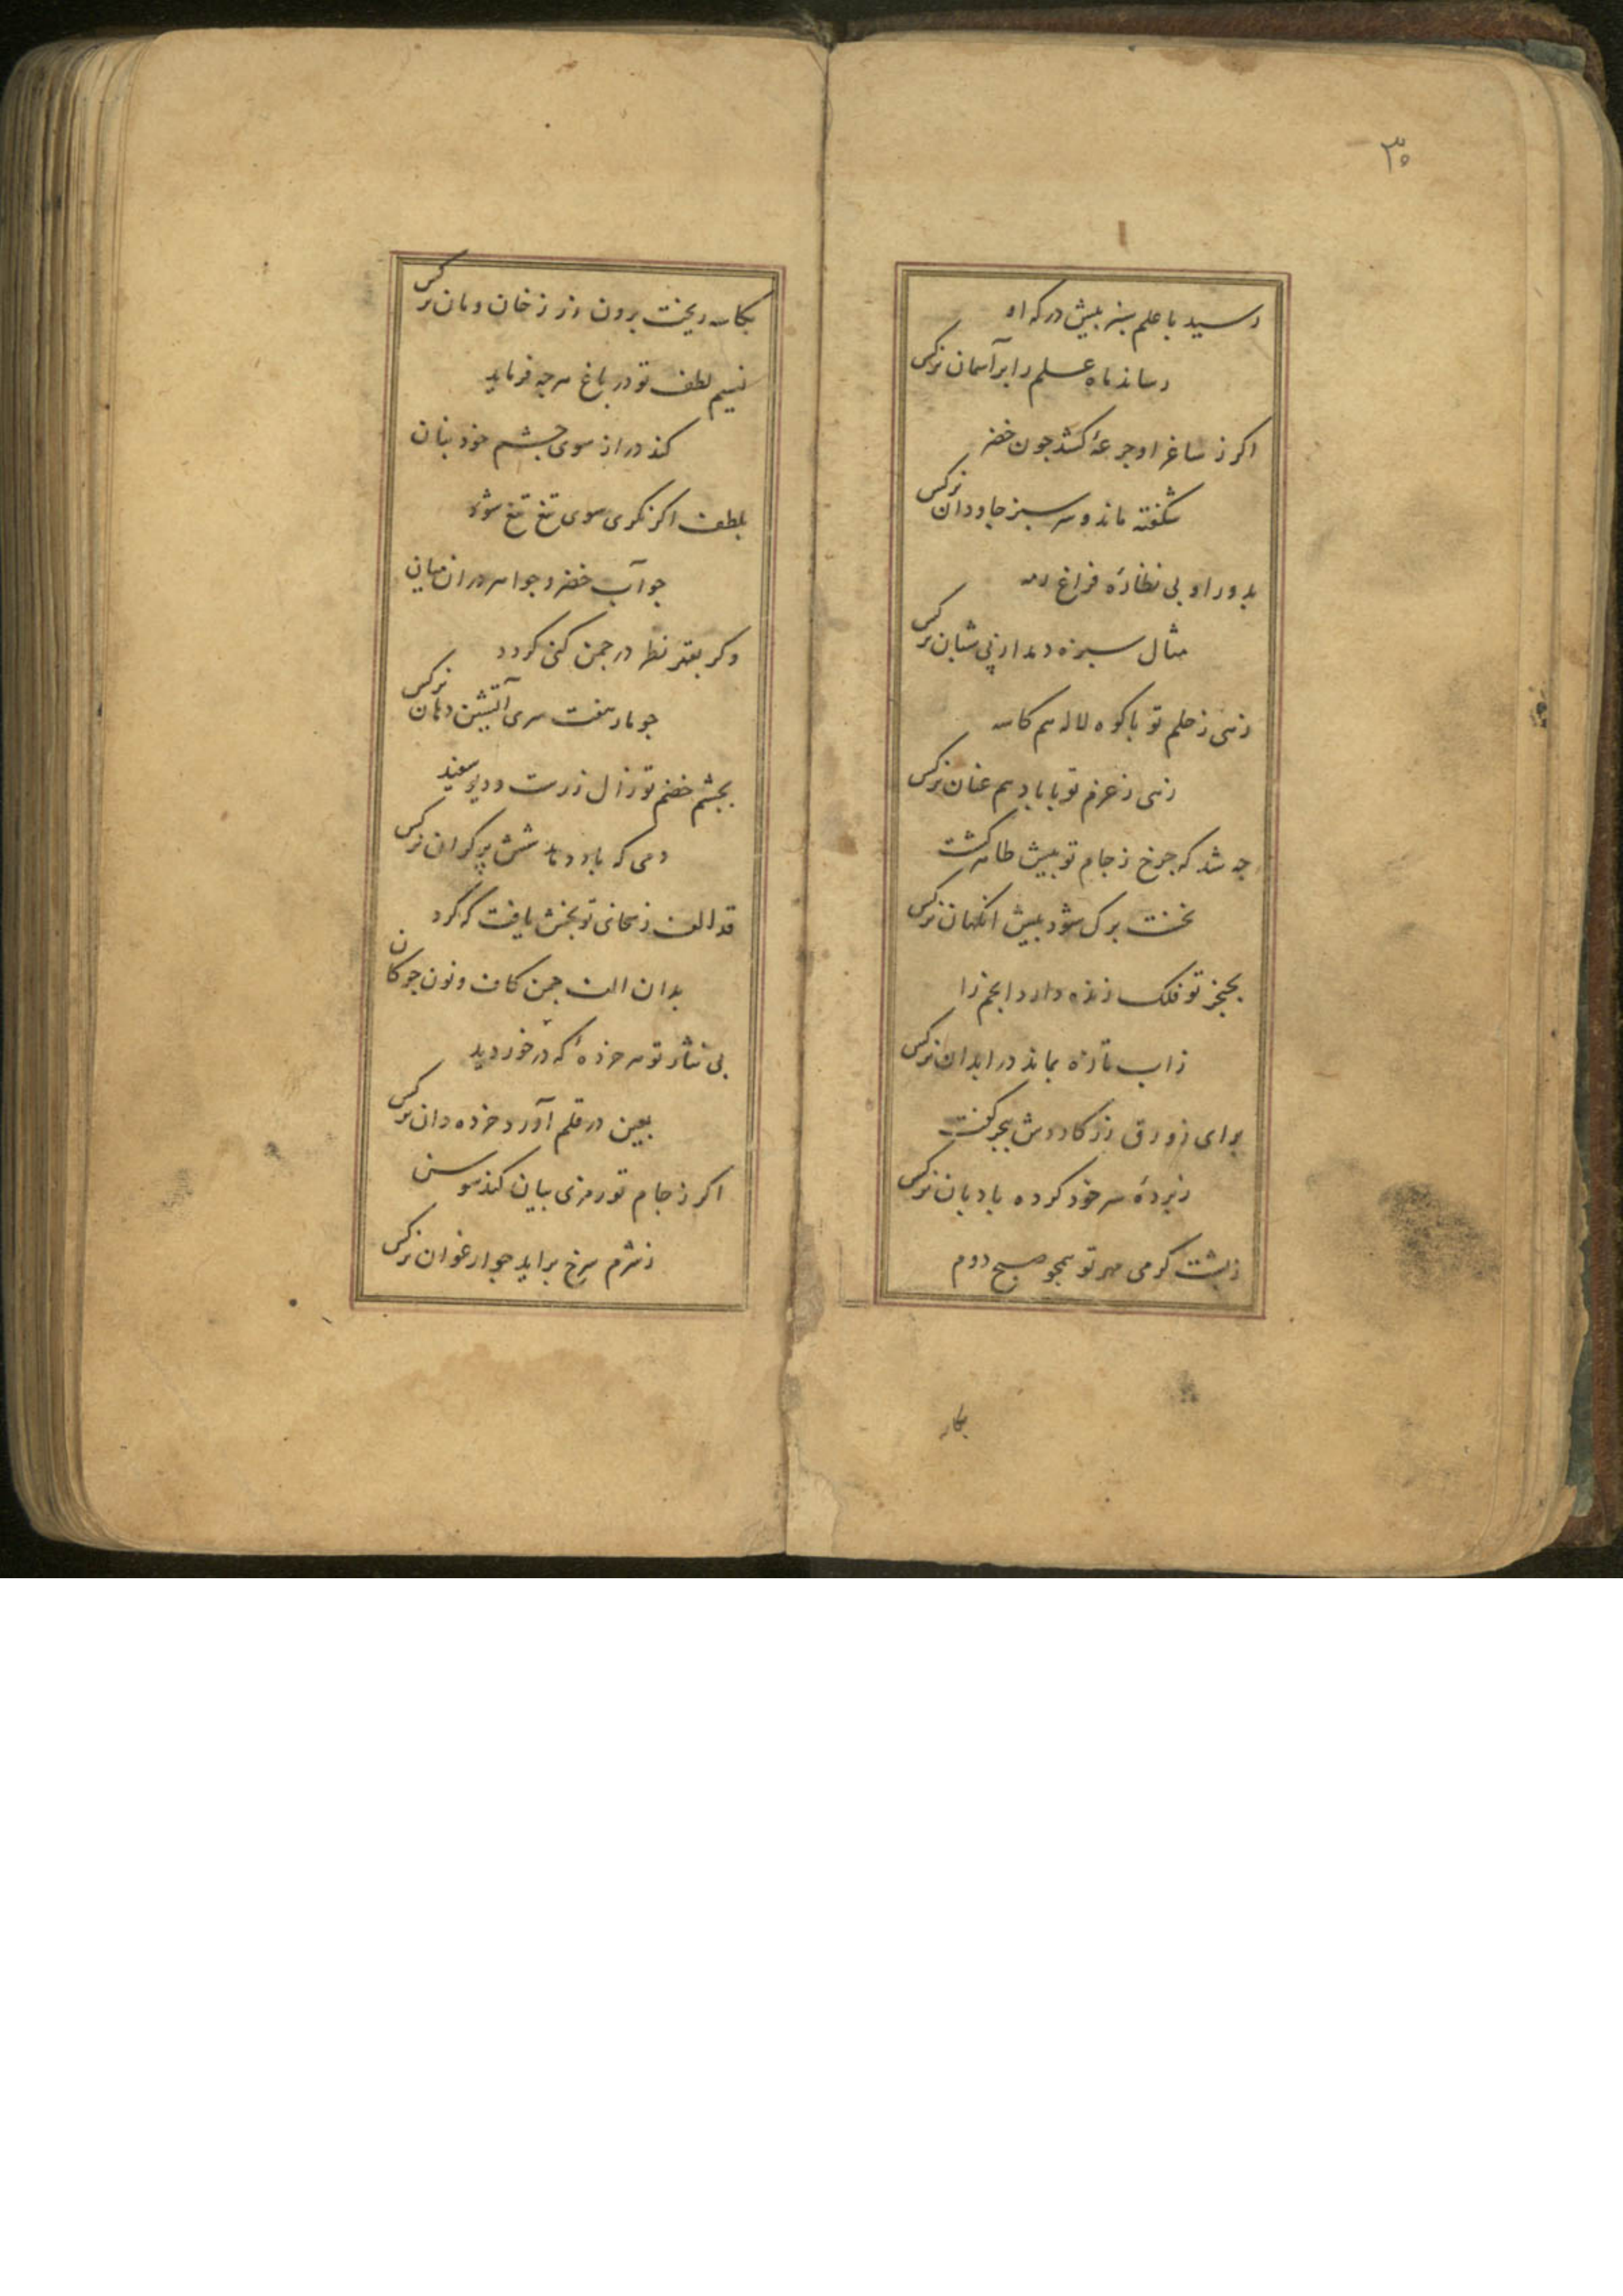 ۳۰
رسید با علم سبز پیش درکه او
رساند ماه علم را بر آسمان نرکس
اکر ز ساغر او جرعهٔ کشد جون خضر
شکفته ماند و سرسبز جاودان نرکس
بدور او بی نظارهٔ فراغ
مثال سبزه دمد از پی شبان نرکس
زهی ز حلم تو با کوه لاله هم کاسه
زهی ز عزم تو با باد هم عنان نرکس
جه شد که جرخ ز جام تو پیش ظاهر کشت
نخست برک شود پیش انکهان نرکس
تو فلک زنده دارد انجم را
ز اب تازه بماند در ابدان نرکس
برای زورق زر کاردش ببحر کفت
زبردهٔ سر خود کرده بادبان نرکس
ز بشت کرمی مهر تو همجو صبح دوم
بکاسه
بکاسه ریخت برون زر ز خان و مان نرکس
نسیم لطف تو در باغ هرجه فرماید
کند در از سوی جشم خود بنان
بلطف اکر نکری سوی تیغ تیغ شود
جو آب خضر و جواهر در ان میان
وکر بقهر نظر در جمن کنی کردد
جو مار هفت سری آتشین دهان نرکس
بجشم خصم تو زال زرست و دیو سفید
دمی که باد دهد شش پر کران نرکس
قد الف ز معانی تو بخش یافت که کرد
بدان الف جمن کاف و نون جوکان
بی نثار تو هر خردهٔ که در خور دید
بعین در قلم آورد خرده دان نرکس
اکر ز جام تو رمزی بیان کند سوسن
ز شرم سرخ براید جو ارغوان نرکس